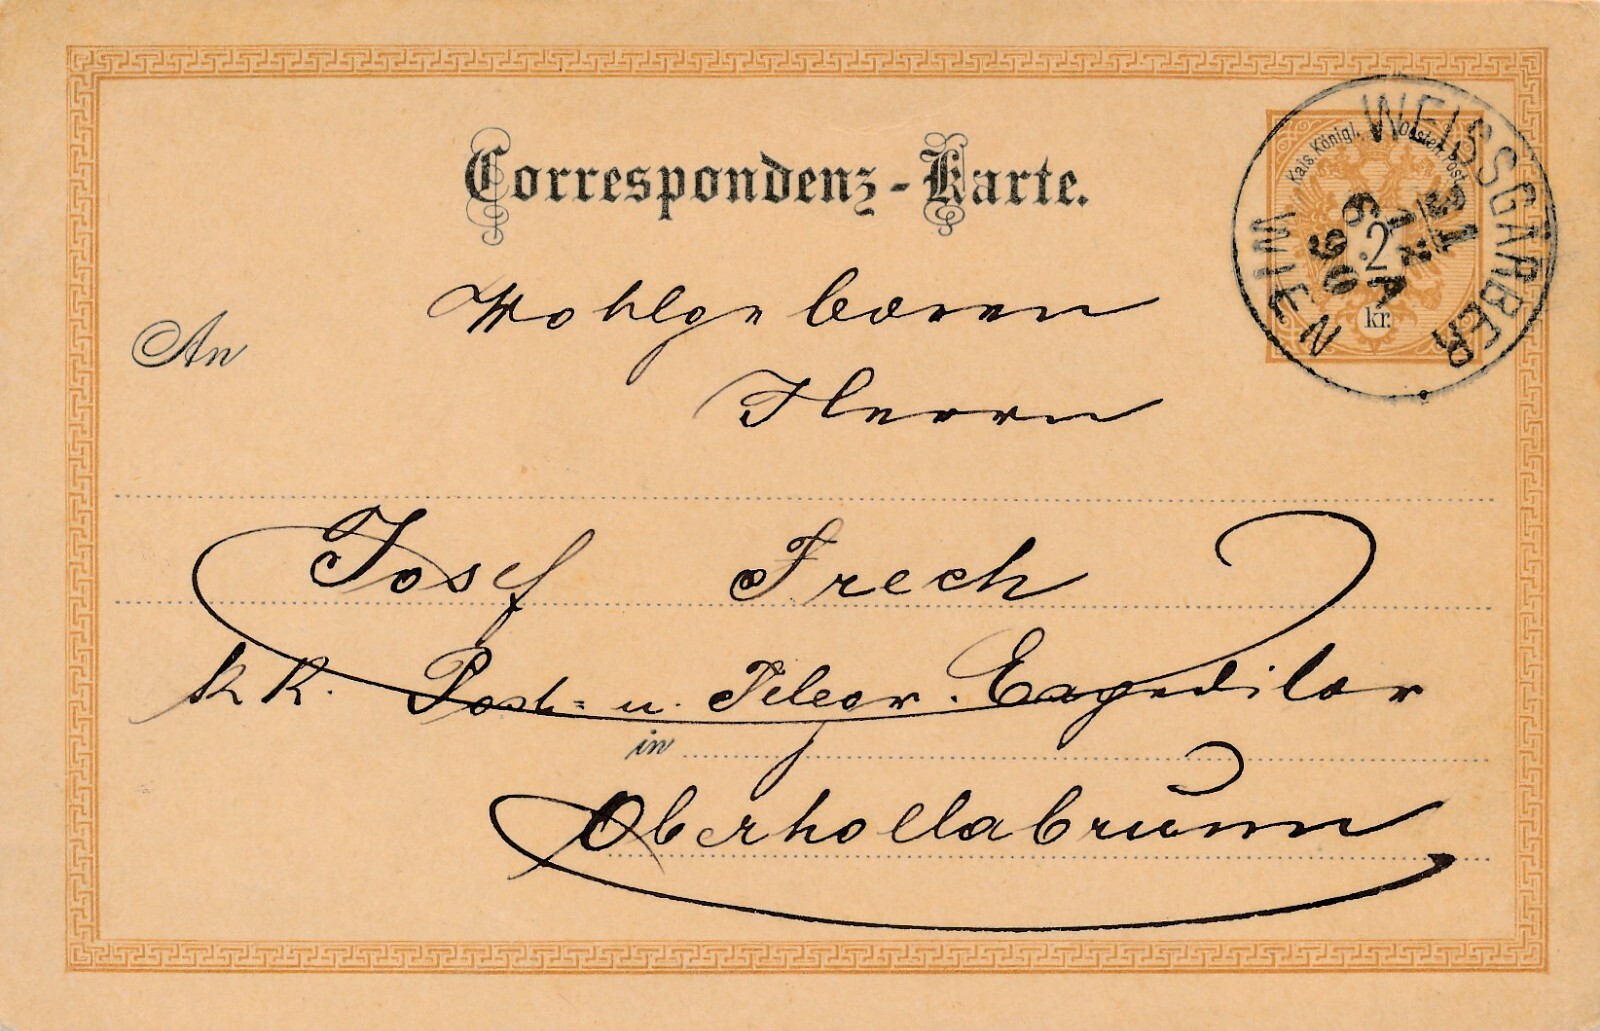 Correspondenz-Karte.
Kais. Königl. Oesterr. Post.
2
kr.
WIEN WEISSGÄRBER
31
12
6 A
90
An
Wohlgeboren
Herrn
Josef Frech
k. k. Post- u. Telegr. Expeditor
in
Oberhollabrunn